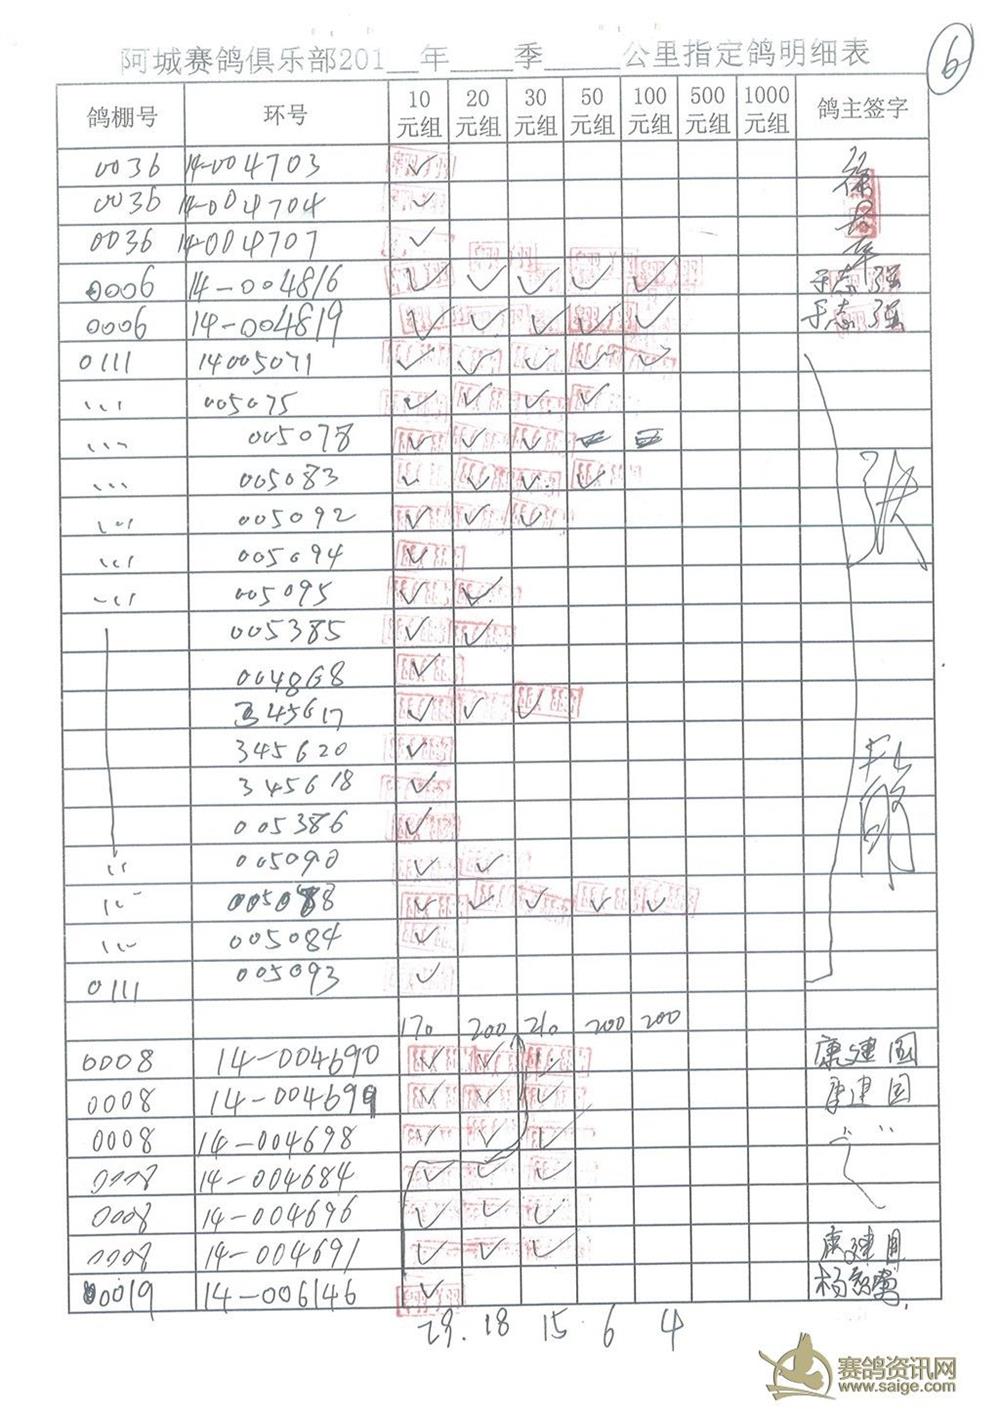 阿城赛鸽俱乐部201__年____季_____公里指定鸽明细表
6
鸽棚号 环号 10元组 20元组 30元组 50元组 100元组 500元组 1000元组 鸽主签字
0036 14-004703 ✓
0036 14-004704 ✓
0036 14-004707 ✓
0006 14-004816 ✓ ✓ ✓ ✓ ✓ 于志强
0006 14-004819 ✓ ✓ ✓ ✓ ✓ 于志强
0111 14005071 ✓ ✓ ✓ ✓ ✓
,,, 005075 ✓ ✓ ✓ ✓
,,, 005078 ✓ ✓ ✓
,,, 005083 ✓ ✓ ✓ ✓
,,, 005092 ✓ ✓ ✓
,,, 005094 ✓
,,, 005095 ✓ ✓
005385 ✓ ✓
004868 ✓
345617 ✓ ✓ ✓
345620 ✓
345618 ✓
005386 ✓
,, 005090 ✓ ✓
,,, ✓ ✓ ✓ ✓ ✓
,,, 005084 ✓
0111 005093 ✓
170 200 210 200 200
0008 14-004690 ✓ ✓ ✓ 康建国
0008 14-004699 ✓ ✓ ✓ 康建国
0008 14-004698 ✓ ✓ ✓ ,, ,,
0008 14-004684 ✓ ✓ ✓
0008 14-004696 ✓ ✓ ✓
0008 14-004691 ✓ ✓ ✓ 康建国
0019 14-006146 ✓
29. 18 15 6 4
赛鸽资讯网
www.saige.com